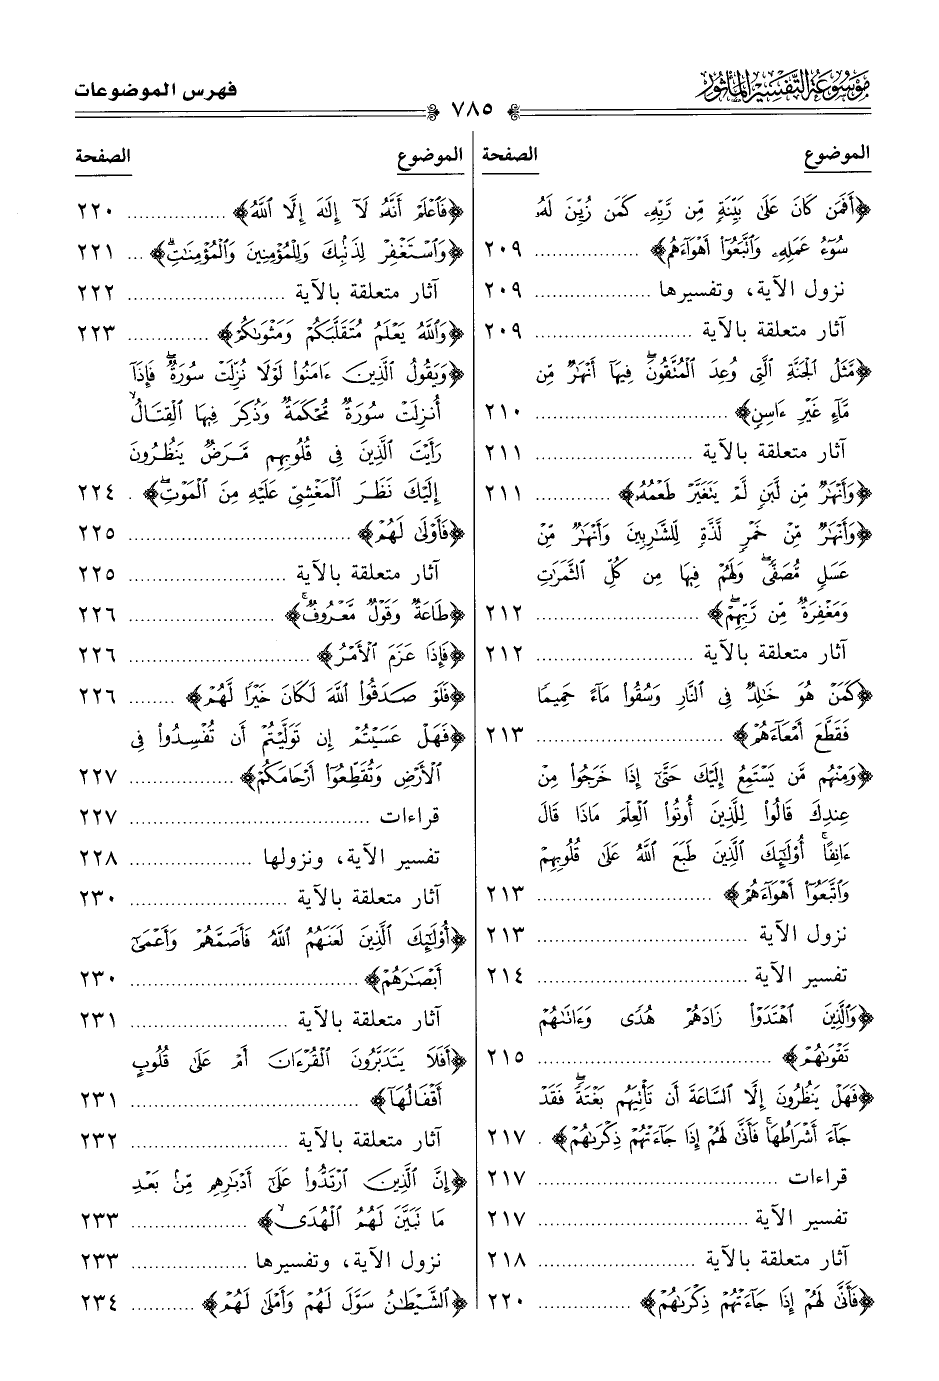 موسوعة التفسير المأثور
فهرس الموضوعات
٧٨٥
الموضوع الصفحة
﴿أَفَمَن كَانَ عَلَىٰ بَيِّنَةٍ مِّن رَّبِّهِۦ كَمَن زُيِّنَ لَهُۥ
سُوٓءُ عَمَلِهِۦ وَٱتَّبَعُوٓا۟ أَهْوَآءَهُم﴾ .................. ٢٠٩
نزول الآية، وتفسيرها .................. ٢٠٩
آثار متعلقة بالآية .................. ٢٠٩
﴿مَّثَلُ ٱلْجَنَّةِ ٱلَّتِى وُعِدَ ٱلْمُتَّقُونَۖ فِيهَآ أَنْهَٰرٌ مِّن
مَّآءٍ غَيْرِ ءَاسِنٍ﴾ .................. ٢١٠
آثار متعلقة بالآية .................. ٢١١
﴿وَأَنْهَٰرٌ مِّن لَّبَنٍ لَّمْ يَتَغَيَّرْ طَعْمُهُۥ﴾ ............ ٢١١
﴿وَأَنْهَٰرٌ مِّنْ خَمْرٍ لَّذَّةٍ لِّلشَّٰرِبِينَ وَأَنْهَٰرٌ مِّنْ
عَسَلٍ مُّصَفًّىۖ وَلَهُمْ فِيهَا مِن كُلِّ ٱلثَّمَرَٰتِ
وَمَغْفِرَةٌ مِّن رَّبِّهِمْۖ﴾ .................. ٢١٢
آثار متعلقة بالآية .................. ٢١٢
﴿كَمَنْ هُوَ خَٰلِدٌ فِى ٱلنَّارِ وَسُقُوا۟ مَآءً حَمِيمًا
فَقَطَّعَ أَمْعَآءَهُمْ﴾ .................. ٢١٣
﴿وَمِنْهُم مَّن يَسْتَمِعُ إِلَيْكَ حَتَّىٰٓ إِذَا خَرَجُوا۟ مِنْ
عِندِكَ قَالُوا۟ لِلَّذِينَ أُوتُوا۟ ٱلْعِلْمَ مَاذَا قَالَ
ءَانِفًاۚ أُو۟لَٰٓئِكَ ٱلَّذِينَ طَبَعَ ٱللَّهُ عَلَىٰ قُلُوبِهِمْ
وَٱتَّبَعُوٓا۟ أَهْوَآءَهُمْ﴾ .................. ٢١٣
نزول الآية .................. ٢١٣
تفسير الآية .................. ٢١٤
﴿وَٱلَّذِينَ ٱهْتَدَوْا۟ زَادَهُمْ هُدًى وَءَاتَىٰهُمْ
تَقْوَىٰهُمْ﴾ .................. ٢١٥
﴿فَهَلْ يَنظُرُونَ إِلَّا ٱلسَّاعَةَ أَن تَأْتِيَهُم بَغْتَةًۖ فَقَدْ
جَآءَ أَشْرَاطُهَاۚ فَأَنَّىٰ لَهُمْ إِذَا جَآءَتْهُمْ ذِكْرَىٰهُمْ﴾ . ٢١٧
قراءات .................. ٢١٧
تفسير الآية .................. ٢١٧
آثار متعلقة بالآية .................. ٢١٨
﴿فَأَنَّىٰ لَهُمْ إِذَا جَآءَتْهُمْ ذِكْرَىٰهُمْ﴾ ............ ٢٢٠
الموضوع الصفحة
﴿فَٱعْلَمْ أَنَّهُۥ لَآ إِلَٰهَ إِلَّا ٱللَّهُ﴾ .................. ٢٢٠
﴿وَٱسْتَغْفِرْ لِذَنۢبِكَ وَلِلْمُؤْمِنِينَ وَٱلْمُؤْمِنَٰتِۗ﴾ ... ٢٢١
آثار متعلقة بالآية .................. ٢٢٢
﴿وَٱللَّهُ يَعْلَمُ مُتَقَلَّبَكُمْ وَمَثْوَىٰكُمْ﴾ .............. ٢٢٣
﴿وَيَقُولُ ٱلَّذِينَ ءَامَنُوا۟ لَوْلَا نُزِّلَتْ سُورَةٌۖ فَإِذَآ
أُنزِلَتْ سُورَةٌ مُّحْكَمَةٌ وَذُكِرَ فِيهَا ٱلْقِتَالُۙ
رَأَيْتَ ٱلَّذِينَ فِى قُلُوبِهِم مَّرَضٌ يَنظُرُونَ
إِلَيْكَ نَظَرَ ٱلْمَغْشِىِّ عَلَيْهِ مِنَ ٱلْمَوْتِۖ﴾ . ٢٢٤
﴿فَأَوْلَىٰ لَهُمْ﴾ .................. ٢٢٥
آثار متعلقة بالآية .................. ٢٢٥
﴿طَاعَةٌ وَقَوْلٌ مَّعْرُوفٌۚ﴾ .................. ٢٢٦
﴿فَإِذَا عَزَمَ ٱلْأَمْرُ﴾ .................. ٢٢٦
﴿فَلَوْ صَدَقُوا۟ ٱللَّهَ لَكَانَ خَيْرًا لَّهُمْ﴾ ........ ٢٢٦
﴿فَهَلْ عَسَيْتُمْ إِن تَوَلَّيْتُمْ أَن تُفْسِدُوا۟ فِى
ٱلْأَرْضِ وَتُقَطِّعُوٓا۟ أَرْحَامَكُمْ﴾ .................. ٢٢٧
قراءات .................. ٢٢٧
تفسير الآية، ونزولها .................. ٢٢٨
آثار متعلقة بالآية .................. ٢٣٠
﴿أُو۟لَٰٓئِكَ ٱلَّذِينَ لَعَنَهُمُ ٱللَّهُ فَأَصَمَّهُمْ وَأَعْمَىٰٓ
أَبْصَٰرَهُمْ﴾ .................. ٢٣٠
آثار متعلقة بالآية .................. ٢٣١
﴿أَفَلَا يَتَدَبَّرُونَ ٱلْقُرْءَانَ أَمْ عَلَىٰ قُلُوبٍ
أَقْفَالُهَآ﴾ .................. ٢٣١
آثار متعلقة بالآية .................. ٢٣٢
﴿إِنَّ ٱلَّذِينَ ٱرْتَدُّوا۟ عَلَىٰٓ أَدْبَٰرِهِم مِّنۢ بَعْدِ
مَا تَبَيَّنَ لَهُمُ ٱلْهُدَىۙ﴾ .................. ٢٣٣
نزول الآية، وتفسيرها .................. ٢٣٣
﴿ٱلشَّيْطَٰنُ سَوَّلَ لَهُمْ وَأَمْلَىٰ لَهُمْ﴾ ............ ٢٣٤